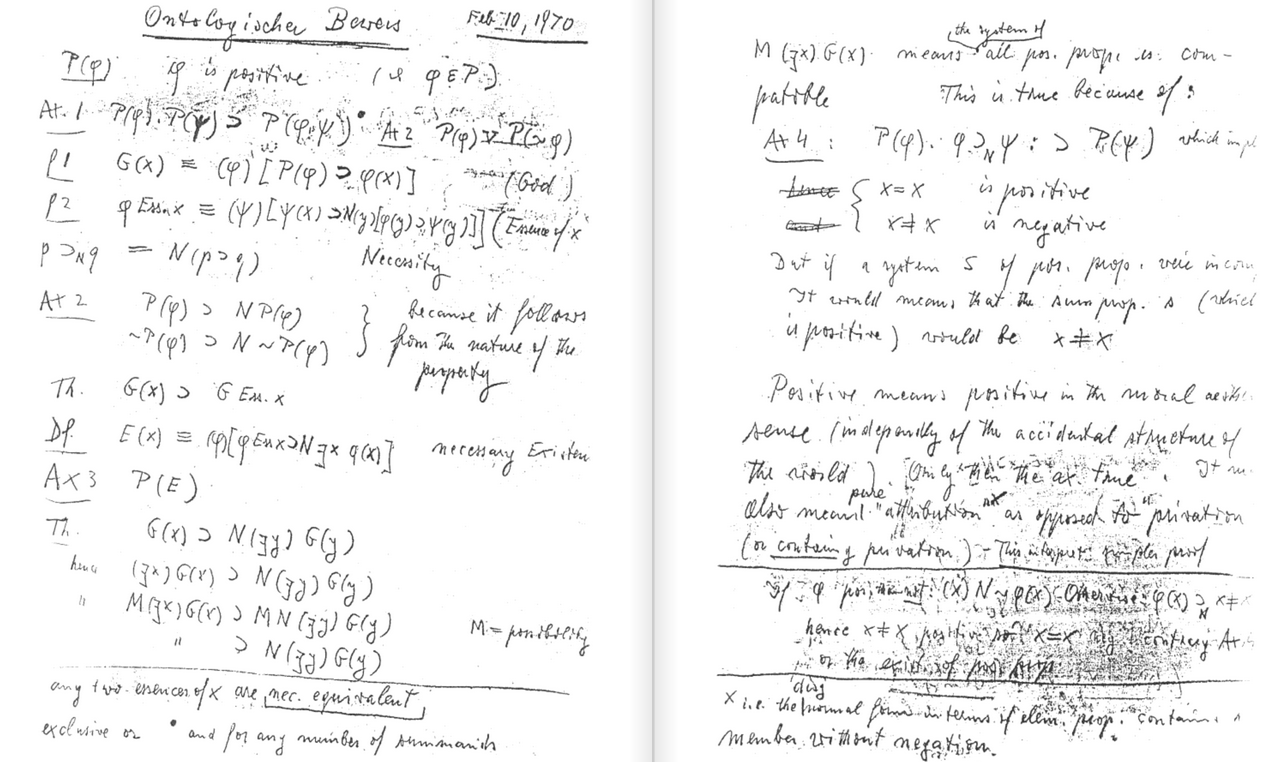 Ontologischer Beweis Feb 10, 1970
P(φ) φ is positive (i.e. φ ε P.)
At. 1 P(φ).P(ψ) ⊃ P(φ.ψ)• At 2 P(φ) ∨ P(~φ)
P1 G(x) ≡ (φ)[P(φ) ⊃ φ(x)] (God)
P2 φ Ess. x ≡ (ψ)[ψ(x) ⊃ N(y)[φ(y) ⊃ ψ(y)]] (Essence of x
p ⊃N q = N(p ⊃ q) Necessity
At 2 P(φ) ⊃ N P(φ) } because it follows
~P(φ) ⊃ N ~P(φ) from the nature of the
property
Th. G(x) ⊃ G Ess. x
Df. E(x) ≡ (φ)[φ Ess x ⊃ N ∃x φ(x)] necessary Existen
Ax 3 P(E)
Th. G(x) ⊃ N(∃y) G(y)
hence (∃x) G(x) ⊃ N(∃y) G(y)
" M(∃x) G(x) ⊃ M N (∃y) G(y)
M = possibility
" ⊃ N(∃y) G(y)
any two essences of x are nec. equivalent
exclusive or • and for any number of summands
the system of
M (∃x) G(x) means all pos. prop. is com-
patible This is true because of :
Ax 4 : P(φ). φ ⊃N ψ : ⊃ P(ψ) which impl
hence { x = x is positive
and x ≠ x is negative
But if a system S of pos. prop. were incom
It would mean that the sum prop. s (which
is positive) would be x ≠ x
Positive means positive in the moral aesthe
sense (indepently of the accidental structure of
the world). Only then the ax. true. It m
pure
also mean "attribution" x as opposed to "privation
(or containing privation.) – This interpret. simpler proof
If φ pos : (x) N ~φ(x). Otherwise: φ(x) ⊃N x ≠
hence x ≠ x positive so x = x contrary At
or the exist. of pos. prop.
disj
x i.e. the normal form in terms of elem. prop. contains
member without negation.